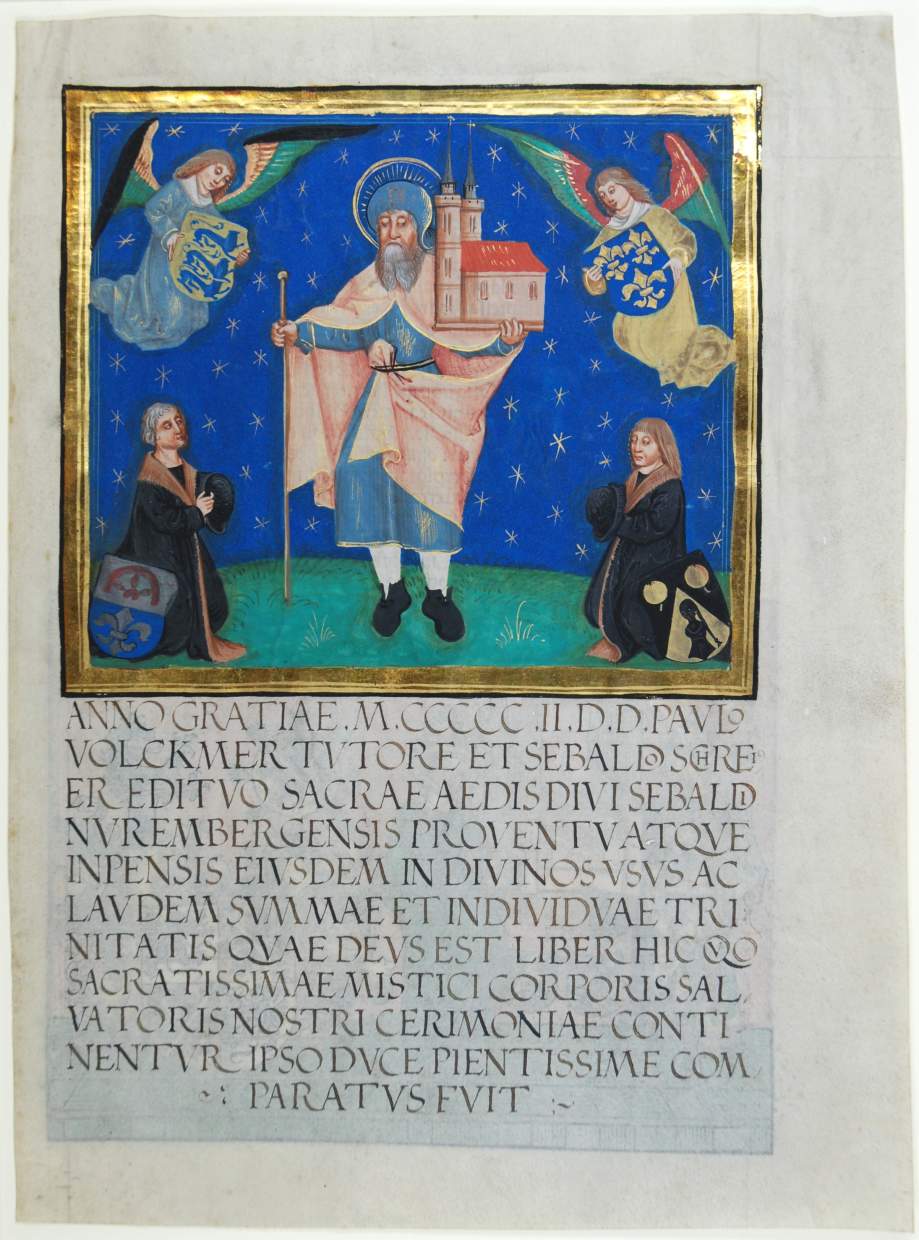 ANNO GRATIAE . M . CCCCC . II . D . D . PAVLO
VOLCKMER TVTORE ET SEBALDO SCHREI
ER EDITVO SACRAE AEDIS DIVI SEBALDI
NVREMBERGENSIS PROVENTV ATQVE
INPENSIS EIVSDEM IN DIVINOS VSVS AC
LAVDEM SVMMAE ET INDIVIDVAE TRI
NITATIS QVAE DEVS EST LIBER HIC QVO
SACRATISSIMAE MISTICI CORPORIS SAL
VATORIS NOSTRI CERIMONIAE CONTI
NENTVR IPSO DVCE PIENTISSIME COM
PARATVS FVIT